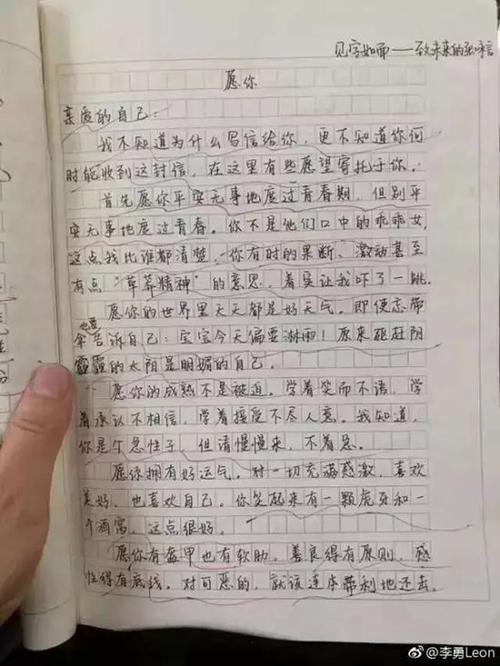 见字如面——致未来的
愿你
亲爱的自己：
我不知道为什么写信给你，更不知道你何
时能收到这封信，在这里有些愿望寄托于你。
首先愿你平安无事地度过青春期，但别平
安无事地度过青春。你不是他们口中的乖乖女，
这点我比谁都清楚，你有时的果断、激动甚至
有点“草莽精神”的意思，着实让我吓了一跳。
愿你的世界里天天都是好天气。即使忘带
伞也要告诉自己：宝宝今天偏要淋雨！原来驱赶阴
霾的太阳是明媚的自己。
愿你的成熟不是被迫。学着笑而不语，学
着承认不相信，学着接受不尽人意。我知道，
你是个急性子，但请慢慢来，不着急。
愿你拥有好运气。对一切充满感激，喜欢
美好，也喜欢自己。你笑起来有一颗虎牙和一
个酒窝，这点很好。
愿你有盔甲也有软肋。善良得有原则，感
性得有底线。对可恶的，就该连本带利地还去。
@李勇Leon